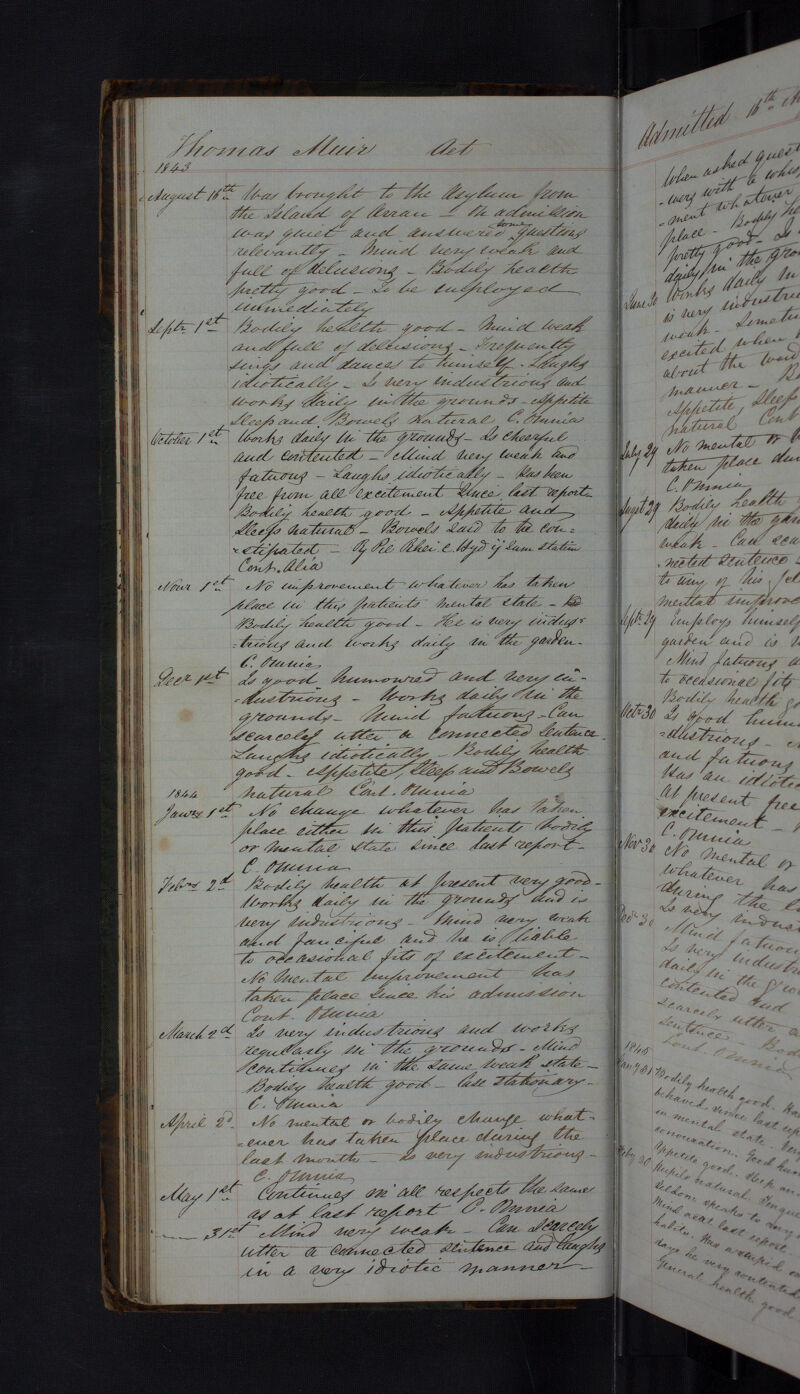 Thomas Muir Aet
1843
August 16th Was brought to the Asylum from
the Island of Arran - On admission
was quiet and answered some questions
relevantly - Mind very weak and
full of delusions - Bodily health
pretty good - To be employed
immediately
Septr 1st Bodily health good - Mind weak
and full of delusions - Frequently
sings and dances to himself - Laughs
idiotically - Is very industrious and
works daily in the grounds - Appetite
Sleep and Bowels natural C. Omnia
October 1st Works daily in the grounds - Is cheerful
and contented - Mind very weak and
fatuous - Laughs idiotically - Has been
free from all excitement since last report -
Bodily health good - Appetite and
Sleep natural - Bowels said to be con=
=stipated - Rx Pil Rhei c Hyd ij Sum statim
Cont. Alia
Novr 1st No improvement whatever has taken
place in this patients mental state -
Bodily health good - He is very indus=
=trious and works daily in the garden -
C. Omnia
Decr 1st Is good humoured and very in=
=dustrious - Works daily in the
grounds - Mind fatuous - Can
scarcely utter a connected sentence -
Laughs idiotically - Bodily health
good - Appetite, Sleep and Bowels
natural Cont. Omnia
1844
Jany 1st No change whatever has taken
place either in this patients bodily
or mental state since last report -
C. Omnia
Feby 2d Bodily health at present very good -
Works daily in the grounds and is
very industrious - Mind very weak
and fanciful and he is liable
to occasional fits of excitement -
No mental improvement has
taken place since his admission
Cont. Omnia
March 2d Is very industrious and works
regularly in the grounds - Mind
continues in the same weak state -
Bodily health good - Case stationary -
C. Omnia
April 2d No mental or bodily change what=
=ever has taken place during the
last month - Is very industrious -
C. Omnia
May 1st Continues in all respects the same
as at last report C. Omnia
31st Mind very weak - Can scarcely
utter a connected sentence and laughs
in a very idiotic manner -
Admitted 16th
When asked quest
-ment whatever
place - Bodily he
pretty good - Is
daily in the gro
June 30 Works daily in
is very industri
weak - Someti
excited when
about the
manner - B
Appetite, Sleep
natural Cont
July 29 No mental or b
taken place du
C. Omnia
Augst 29 Bodily health
daily in the gar
weak - Can sca
-nected sentence
to any of his fel
mental improve
Septr 29 Employs himself
garden and is
Mind fatuous a
to occasional fits
Bodily health go
Octr 30 Is good humo
=dustrious -
and fatuous
Has an idioti
at present free
excitement -
C. Omnia
Novr 30 No mental or
whatever has
during the la
Is very indust
Decr 30 Mind fatuou
Is very industri
daily in the gro
contented and
scarcely utter a
sentence - Bod
Cont. Omnia
1845
Jany 31 Bodily health good - Has
behaved since last rep
in mental state - Very
Good hum
Appetite good. Sleep
Pupils natural. Tongue
Seldom speaks to any
Mind as at last report -
habits. Has a stupid
says he very contented
General health good